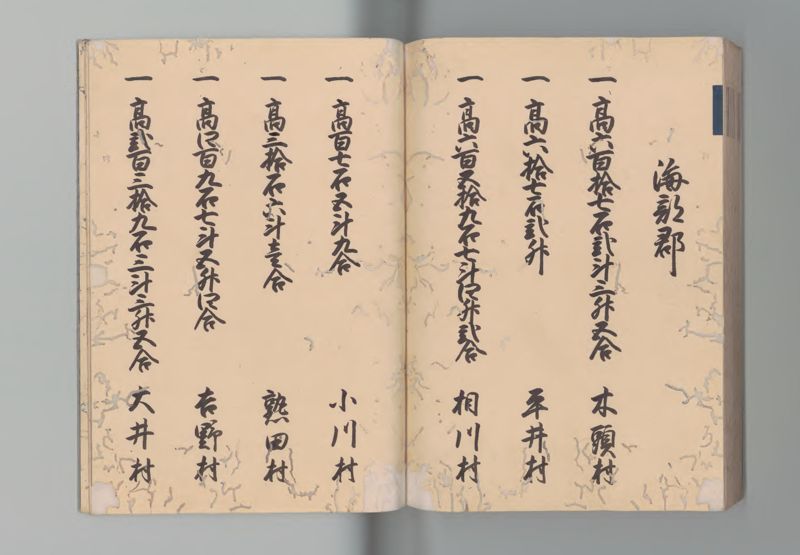 海部郡
一高六百拾七石弐斗三升五合 木頭村
一高六拾七石弐升 平井村
一高六百五拾九石七斗四升弐合 相川村
一高百七石五斗九合 小川村
一高三拾石六斗壱合 熟田村
一高四百九石七斗五升四合 吉野村
一高弐百三拾九石三斗三升五合 大井村